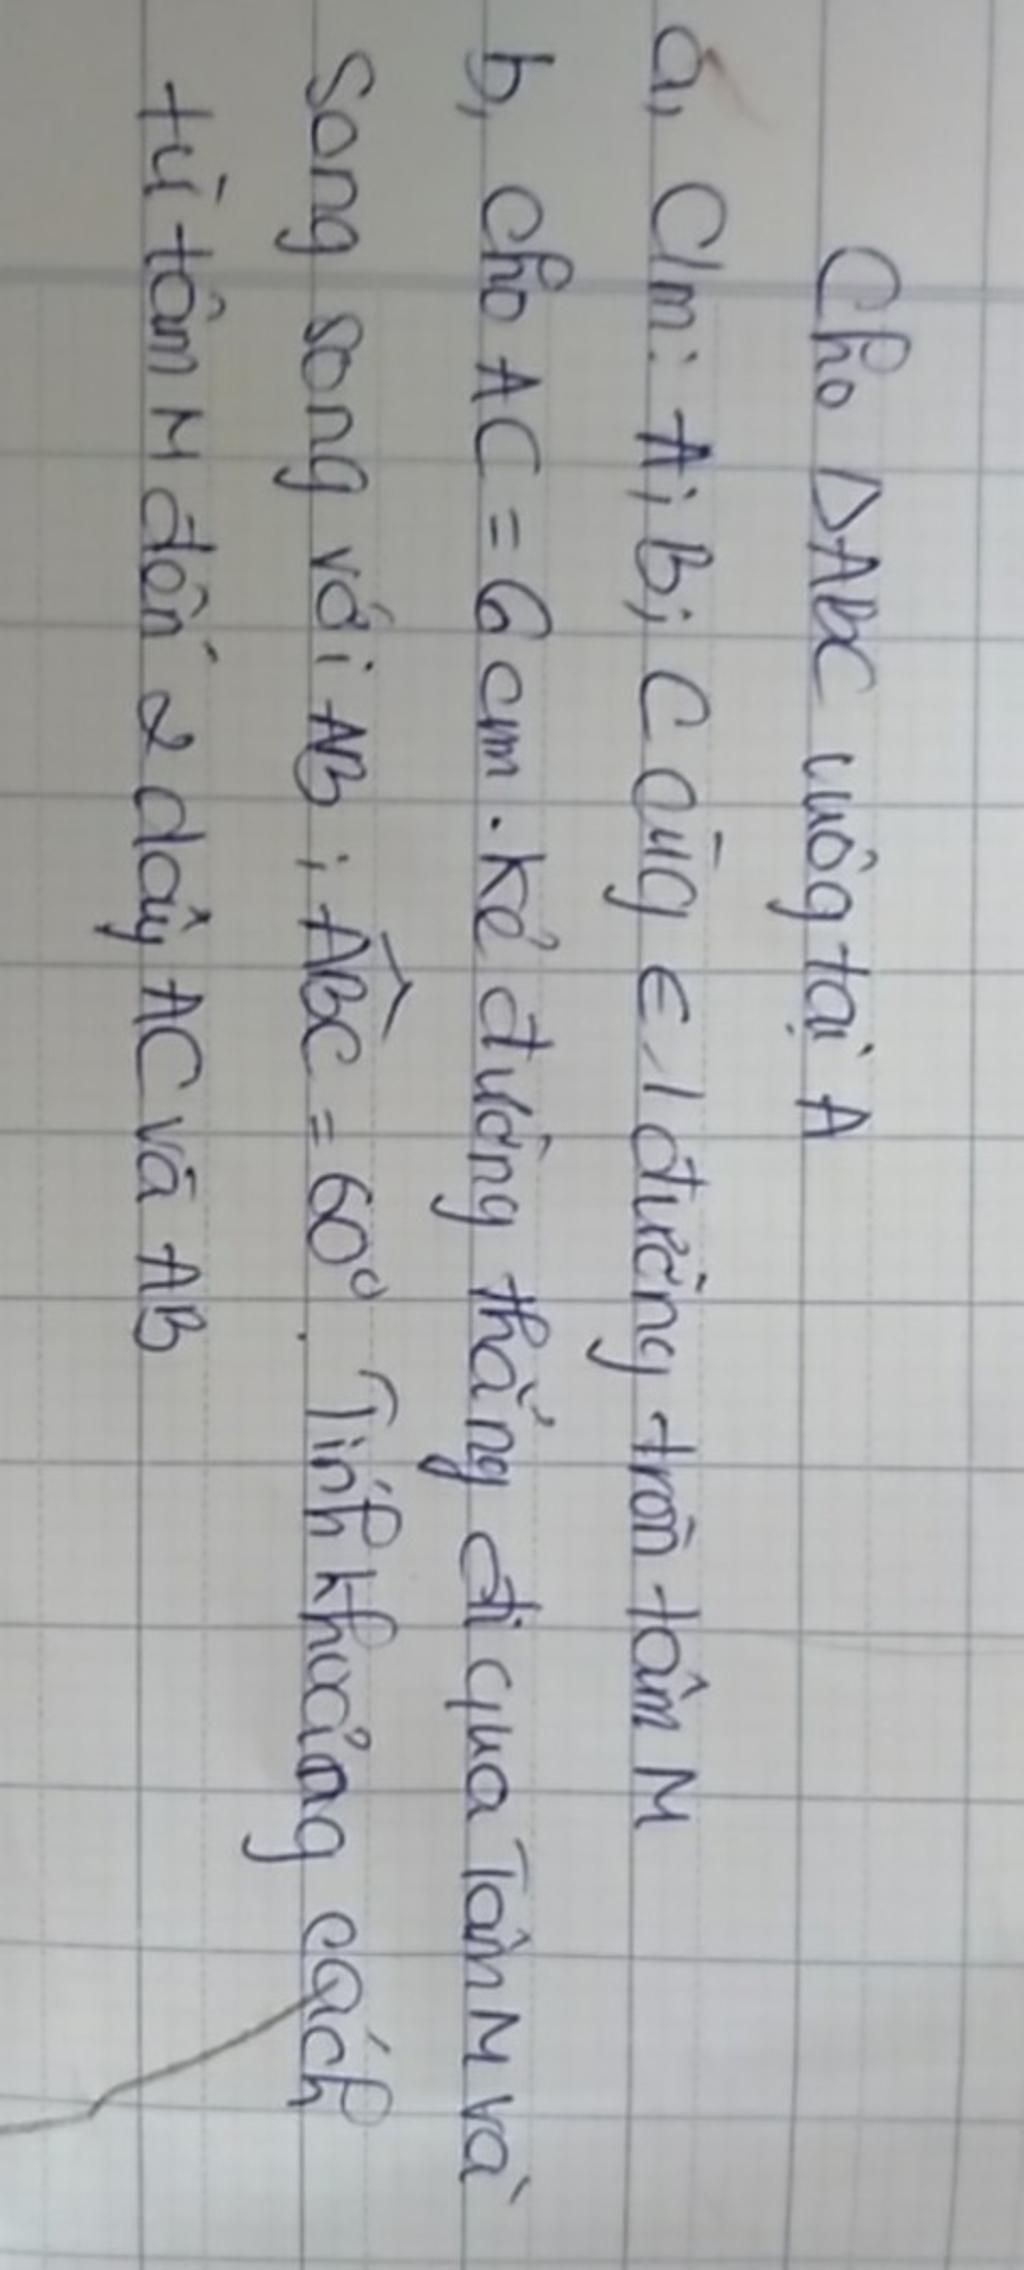 Cho ΔABC vuôg tại A
a, C/m: A; B; C cùg ∈ 1 đường tròn tâm M
b, Cho AC = 6 cm. Kẻ đường thẳng đi qua Tâm M và
song song với AB; ABC = 60°. Tính khoảng cách
từ tâm M đến 2 dây AC và AB